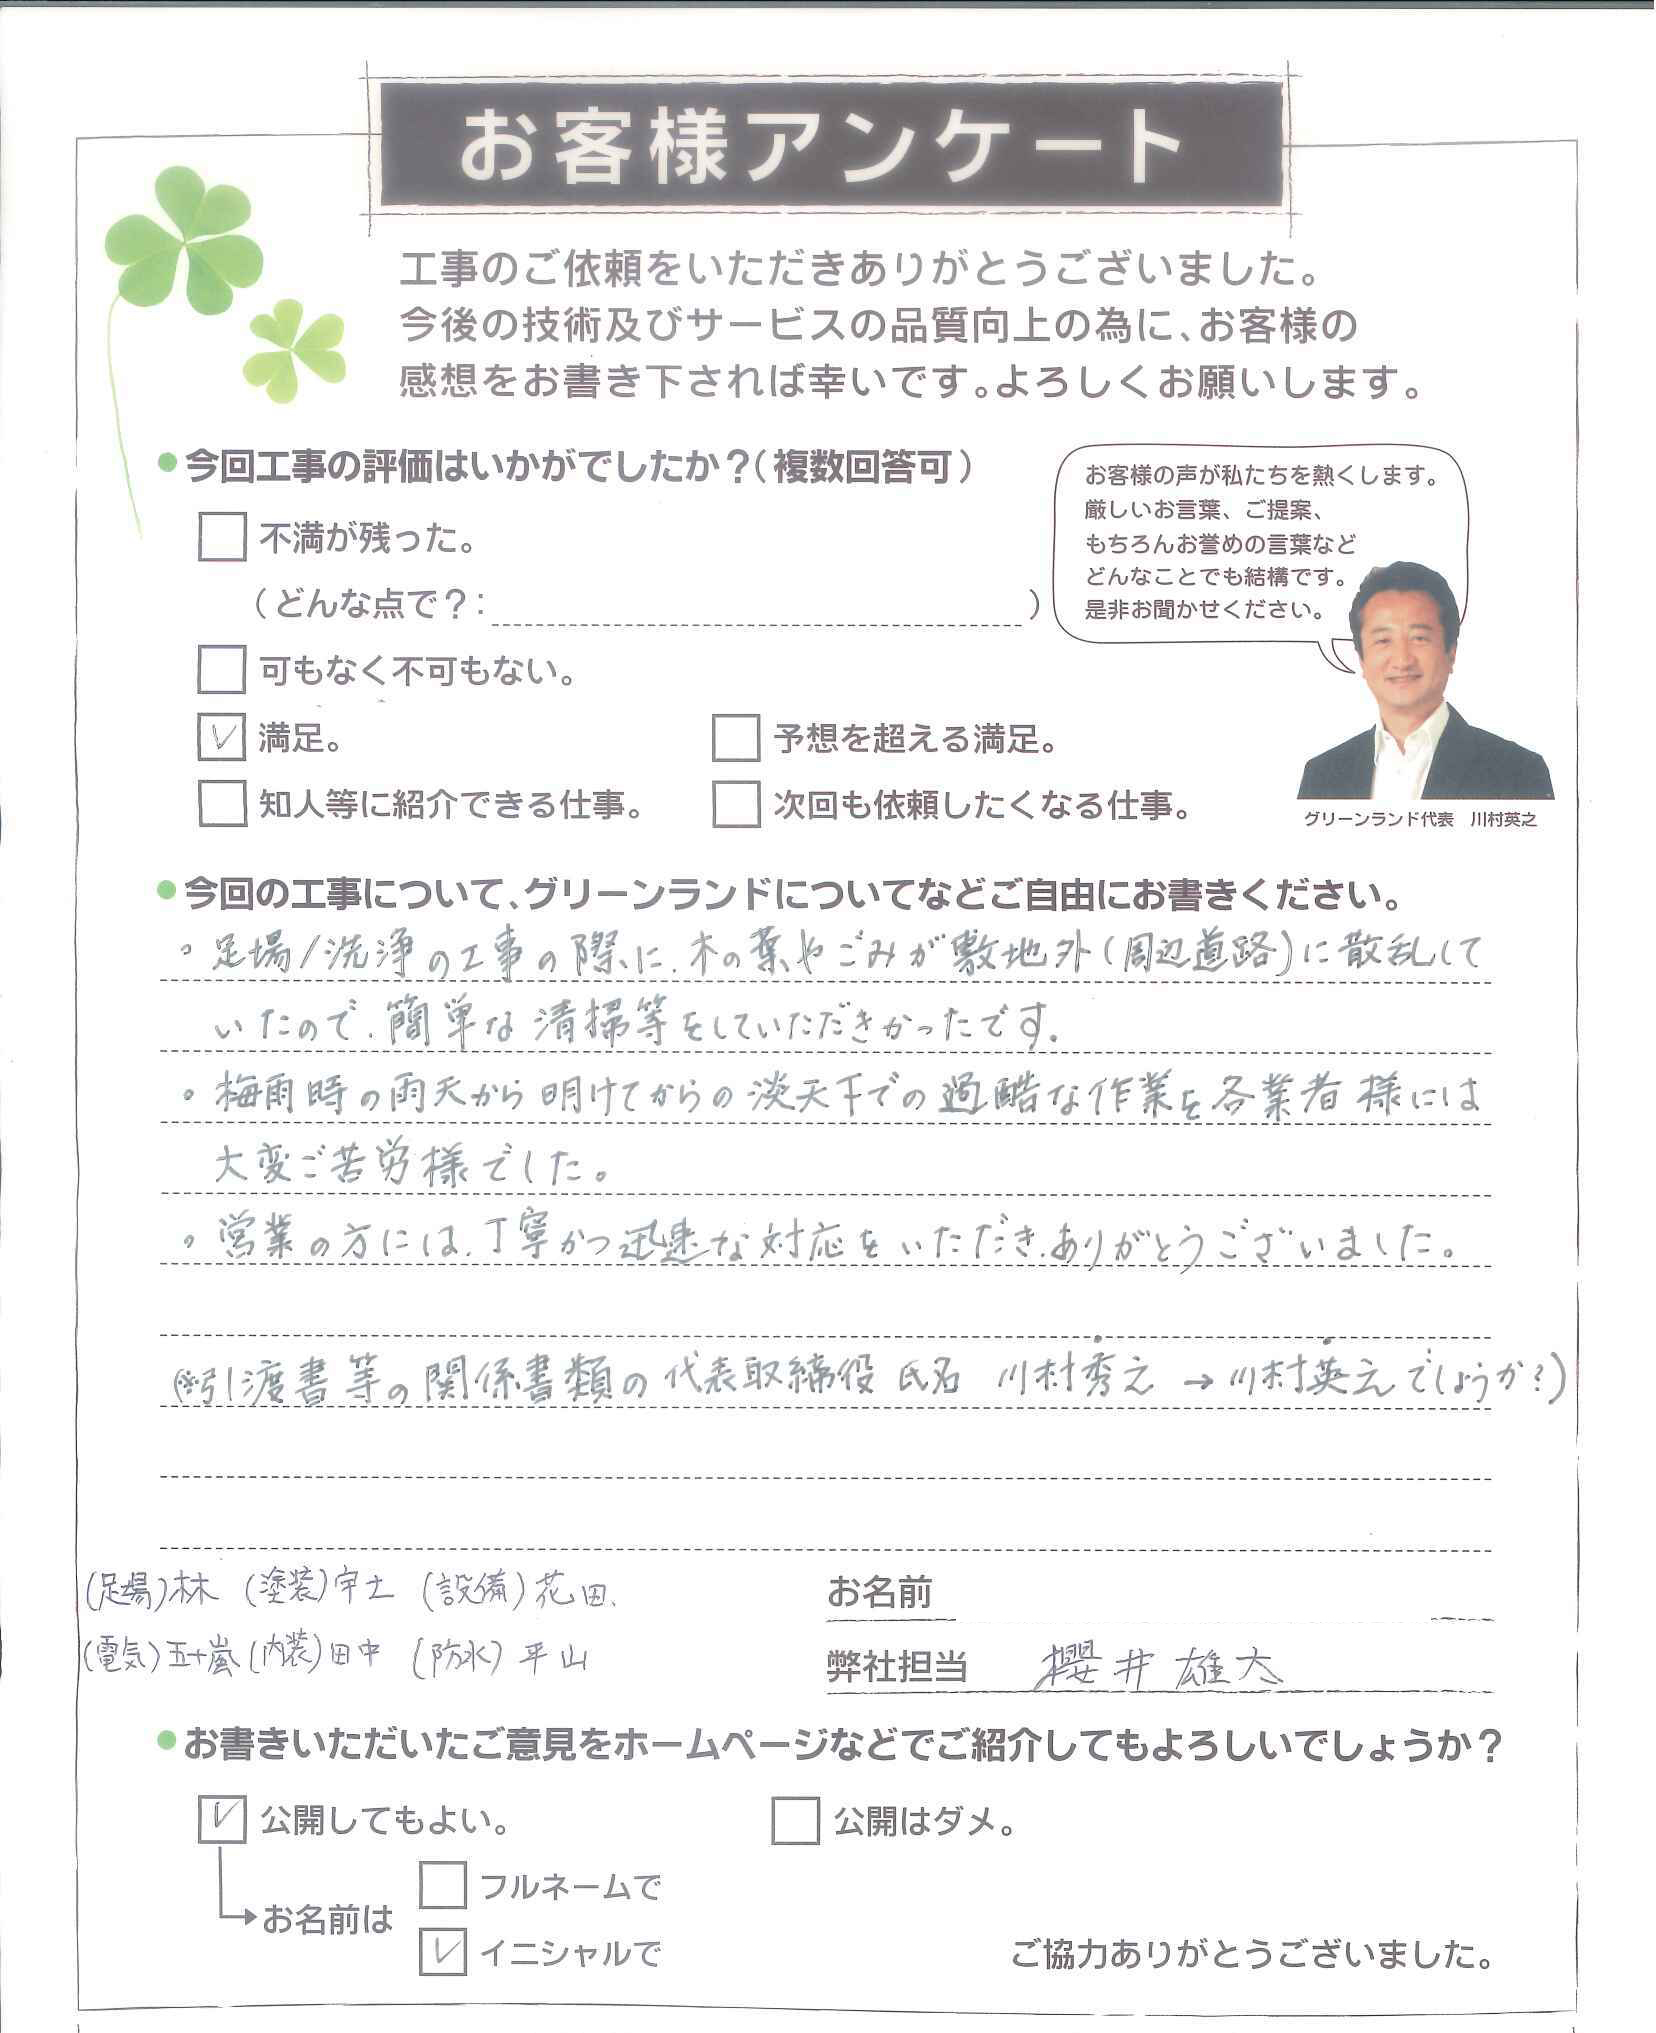 お客様アンケート
工事のご依頼をいただきありがとうございました。
今後の技術及びサービスの品質向上の為に、お客様の
感想をお書き下されば幸いです。よろしくお願いします。
●今回工事の評価はいかがでしたか？（複数回答可）
不満が残った。
（どんな点で？：　）
可もなく不可もない。
満足。　予想を超える満足。
知人等に紹介できる仕事。　次回も依頼したくなる仕事。
お客様の声が私たちを熱くします。
厳しいお言葉、ご提案、
もちろんお誉めの言葉など
どんなことでも結構です。
是非お聞かせください。
グリーンランド代表　川村英之
●今回の工事について、グリーンランドについてなどご自由にお書きください。
。足場/洗浄の工事の際に、木の葉やごみが敷地外(周辺道路)に散乱して
いたので、簡単な清掃等をしていただきかったです。
。梅雨時の雨天から明けてからの淡天下での過酷な作業を各業者様には
大変ご苦労様でした。
。営業の方には、丁寧かつ迅速な対応をいただき、ありがとうございました。
(※引渡書等の関係書類の代表取締役 氏名 川村秀之 → 川村英之でしょうか?)
(足場)林 (塗装)宇土 (設備)花田、
(電気)五十嵐 (内装)田中 (防水)平山
お名前
弊社担当　櫻井雄大
●お書きいただいたご意見をホームページなどでご紹介してもよろしいでしょうか？
公開してもよい。　公開はダメ。
お名前は
フルネームで
イニシャルで
ご協力ありがとうございました。